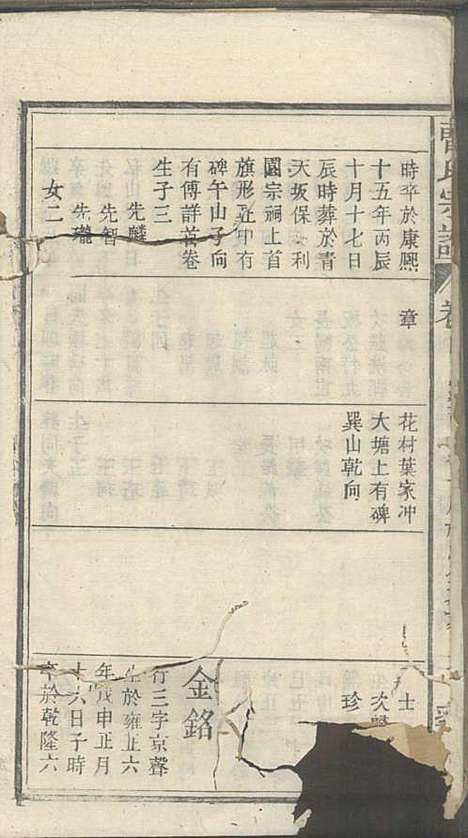 宗譜
卷
時卒於康熙
十五年丙辰
十月十七日
辰時葬於青
天坂保大利
園宗祠上首
旗形立中有
碑午山子向
有傳詳首卷
生子三
先麟
先智
先瓏
女二
章
花村葉家冲
大塘上有碑
巽山乾向
士
次
珍
金銘
行三字京聲
生於雍正六
年戊申正月
十六日子時
卒於乾隆六